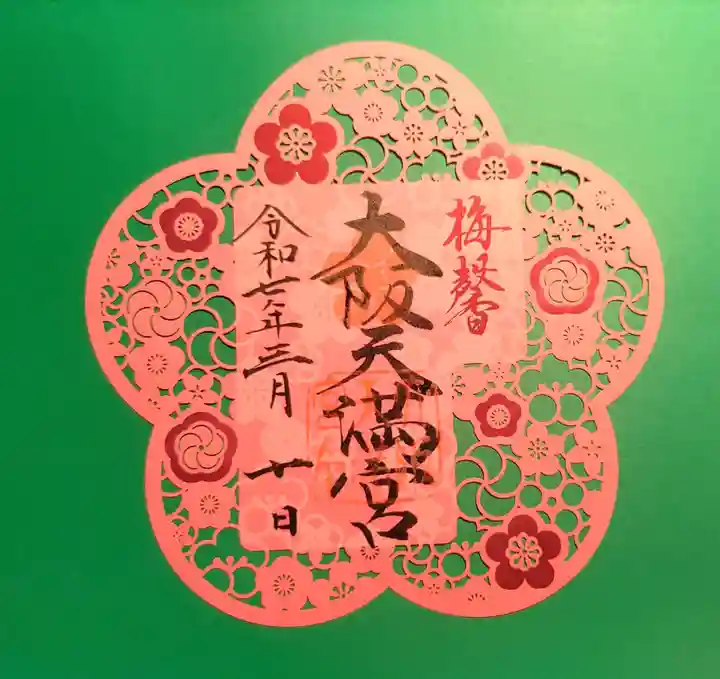 梅馨
大阪天満宮
令和七年三月 十日